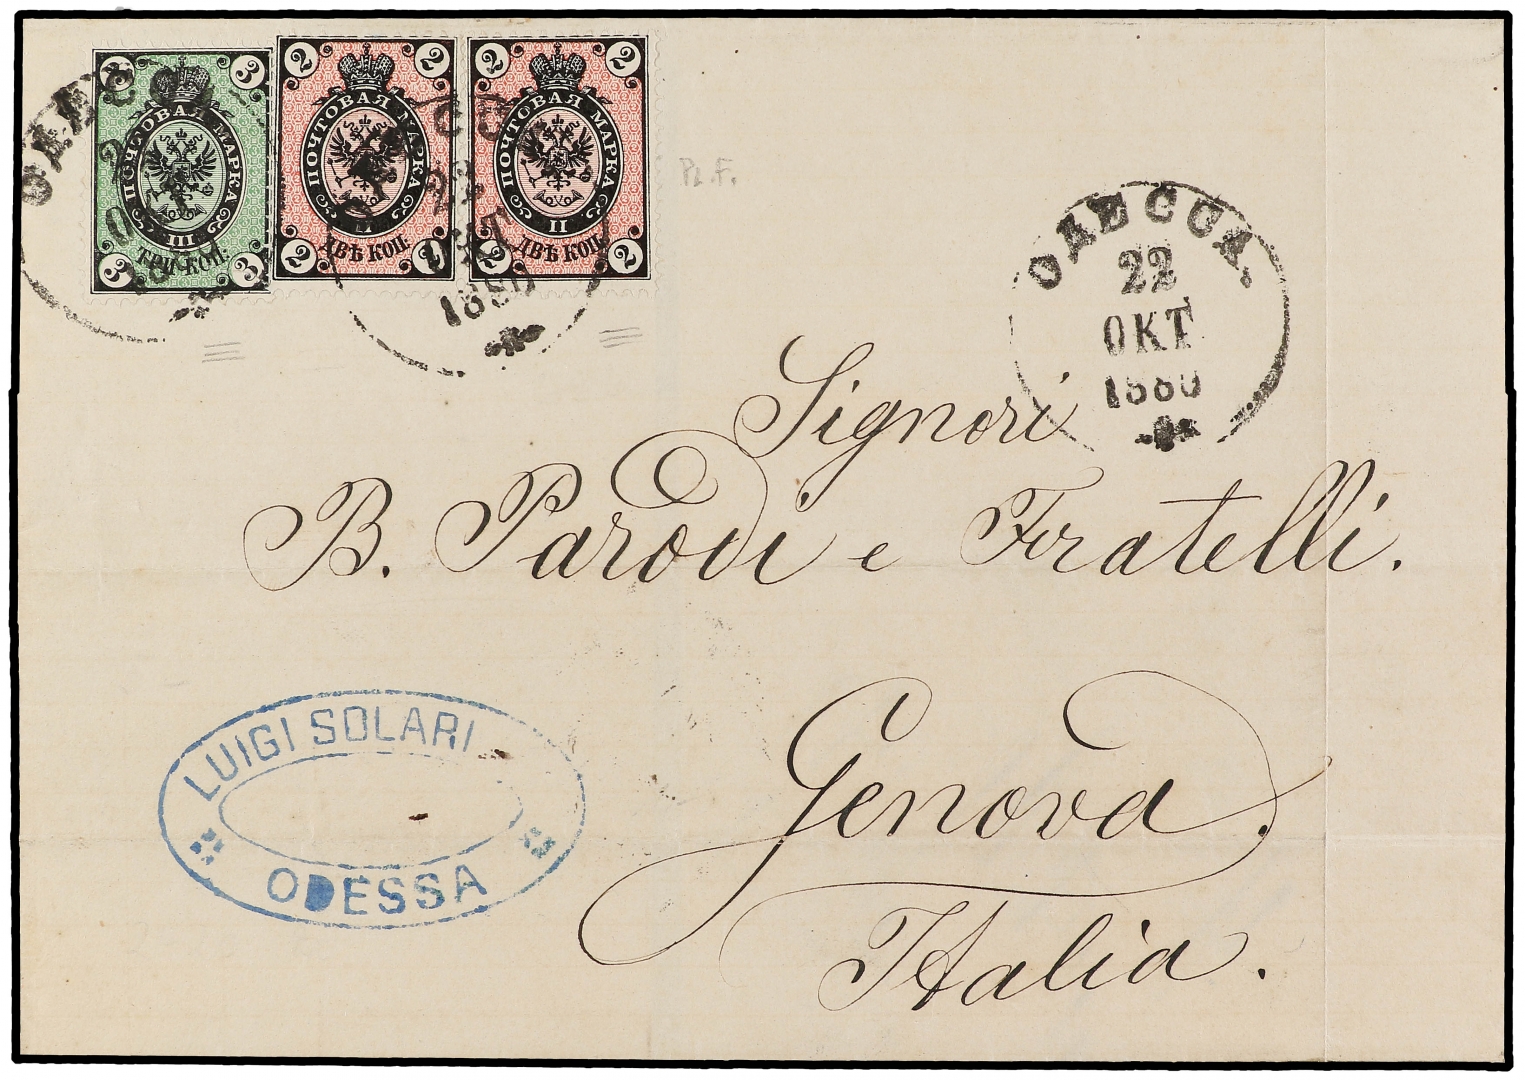 3 3
ПОЧТОВАЯ МАРКА
III
ТРИ КОП:
3 3
2 2
ПОЧТОВАЯ МАРКА
II
ДВѢ КОП:
2 2
2 2
ПОЧТОВАЯ МАРКА
II
ДВѢ КОП:
2 2
ОДЕССА
ОКТ
ОДЕССА
22
ОКТ
1880
ОДЕССА.
22
ОКТ
1880
Signori
B. Parodi e Fratelli.
Genova.
Italia.
LUIGI SOLARI
ODESSA